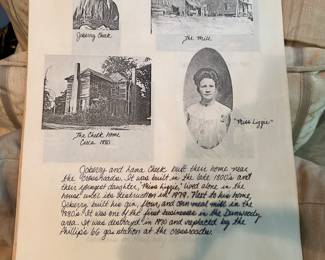 Joberry Cheek
The Mill
The Cheek home
Circa 1880
"Miss Lizzie"
Joberry and Lana Cheek built their home near
the Crossroads. It was built in the late 1800's and
their youngest daughter, "Miss Lizzie", lived alone in the
house until its destruction in 1979. Next to his home,
Joberry built his gin, flour, and corn meal mill in the
1880's. It was one of the first businesses in the Dunwoody
area. It was destroyed in 1970 and replaced by the
Phillip's 66 gas station at the crossroads.